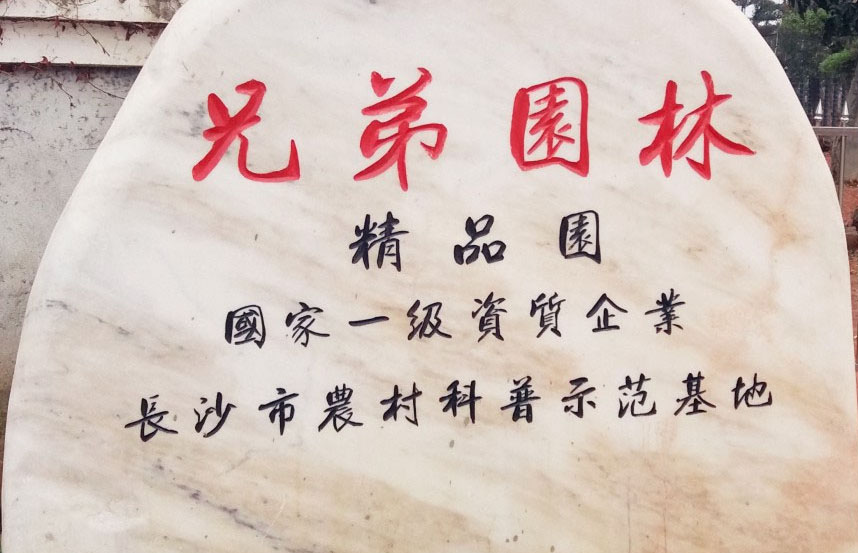 兄弟園林
精品園
國家一级資質企業
長沙市農村科普示范基地